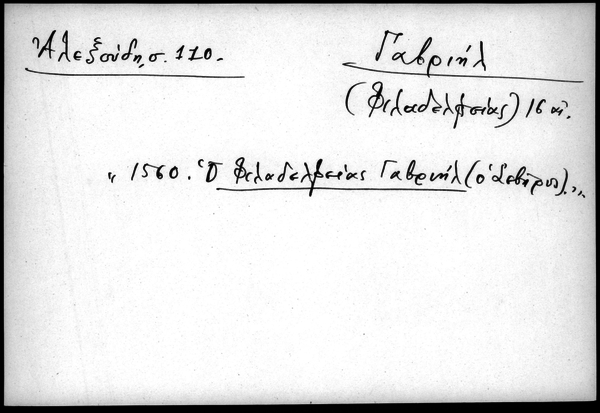 Ἀλεξούδη, σ. 110.
Γαβριήλ
(Φιλαδελφείας) 16 αἰ.
" 1560. Ὁ Φιλαδελφείας Γαβριήλ (ὁ Σεβῆρος)."